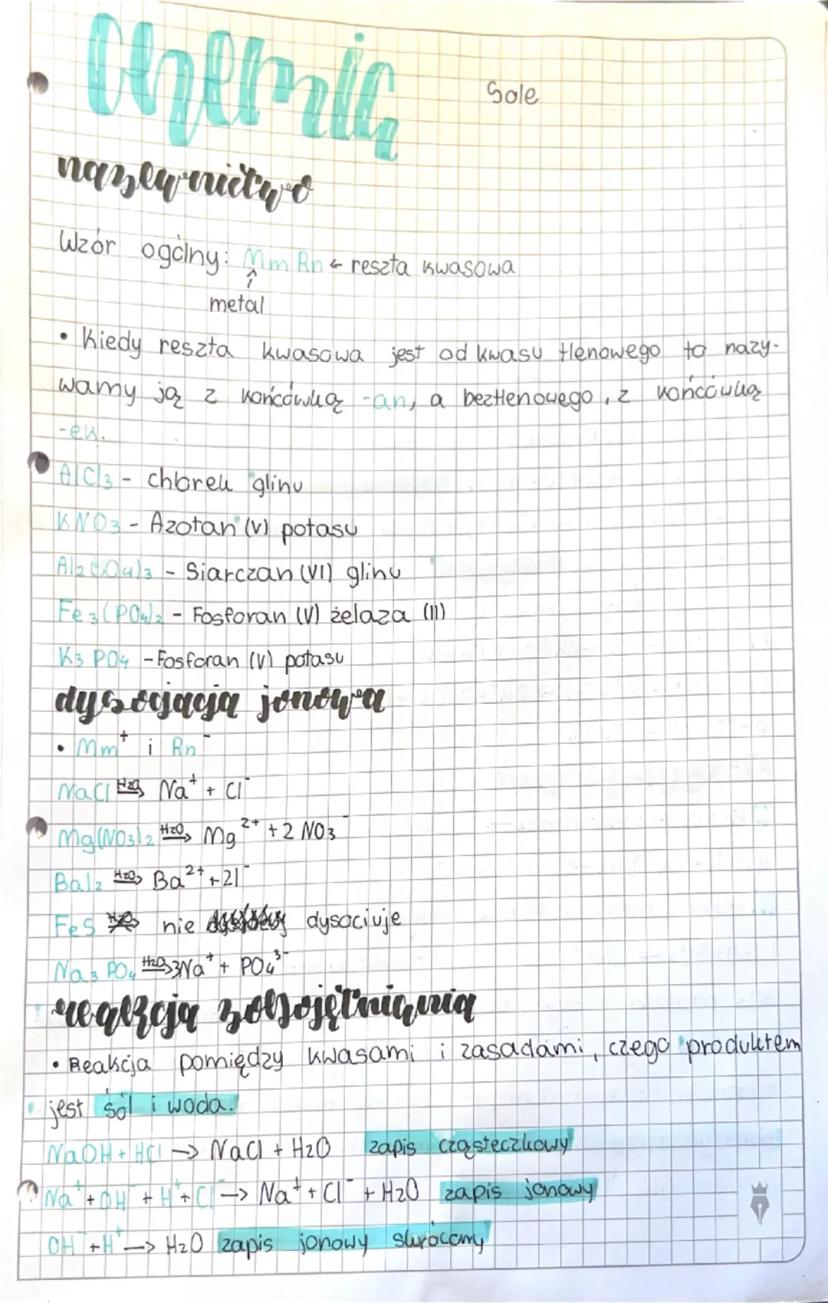 Chemia
Sole
nazewnictwo
Wzór ogólny: Mm Rn ← reszta kwasowa
↑
metal
• Kiedy reszta kwasowa jest od kwasu tlenowego to nazy-
wamy ją z końcówką -an, a beztlenowego, z końcówką
-ek.
AlCl3 - chlorek glinu
KNO3 - Azotan (V) potasu
Al2(SO4)3 - Siarczan (VI) glinu
Fe3(PO4)2 - Fosforan (V) żelaza (II)
K3PO4 - Fosforan (V) potasu
dysocjacja jonowa
• Mm⁺ i Rn⁻
NaCl H2O→ Na⁺ + Cl⁻
Mg(NO3)2 H2O→ Mg²⁺ + 2 NO3⁻
BaI2 H2O→ Ba²⁺ + 2I⁻
FeS H2O→ nie dysociuje
Na3PO4 H2O→ 3Na⁺ + PO4³⁻
reakcja zobojętniania
• Reakcja pomiędzy kwasami i zasadami, czego produktem
jest sól i woda.
NaOH + HCl → NaCl + H2O zapis cząsteczkowy
Na⁺ + OH⁻ + H⁺ + Cl⁻ → Na⁺ + Cl⁻ + H2O zapis jonowy
OH⁻ + H⁺ → H2O zapis jonowy skrócony